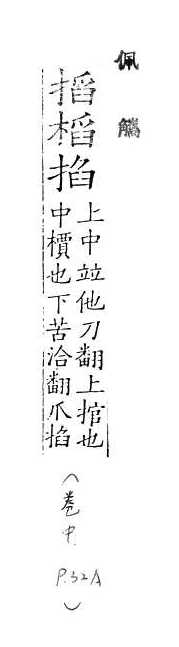 佩觿
搯槄掐
上中竝他刀翻上搯也
中檟也下苦洽翻爪掐
（卷中
P.32A）